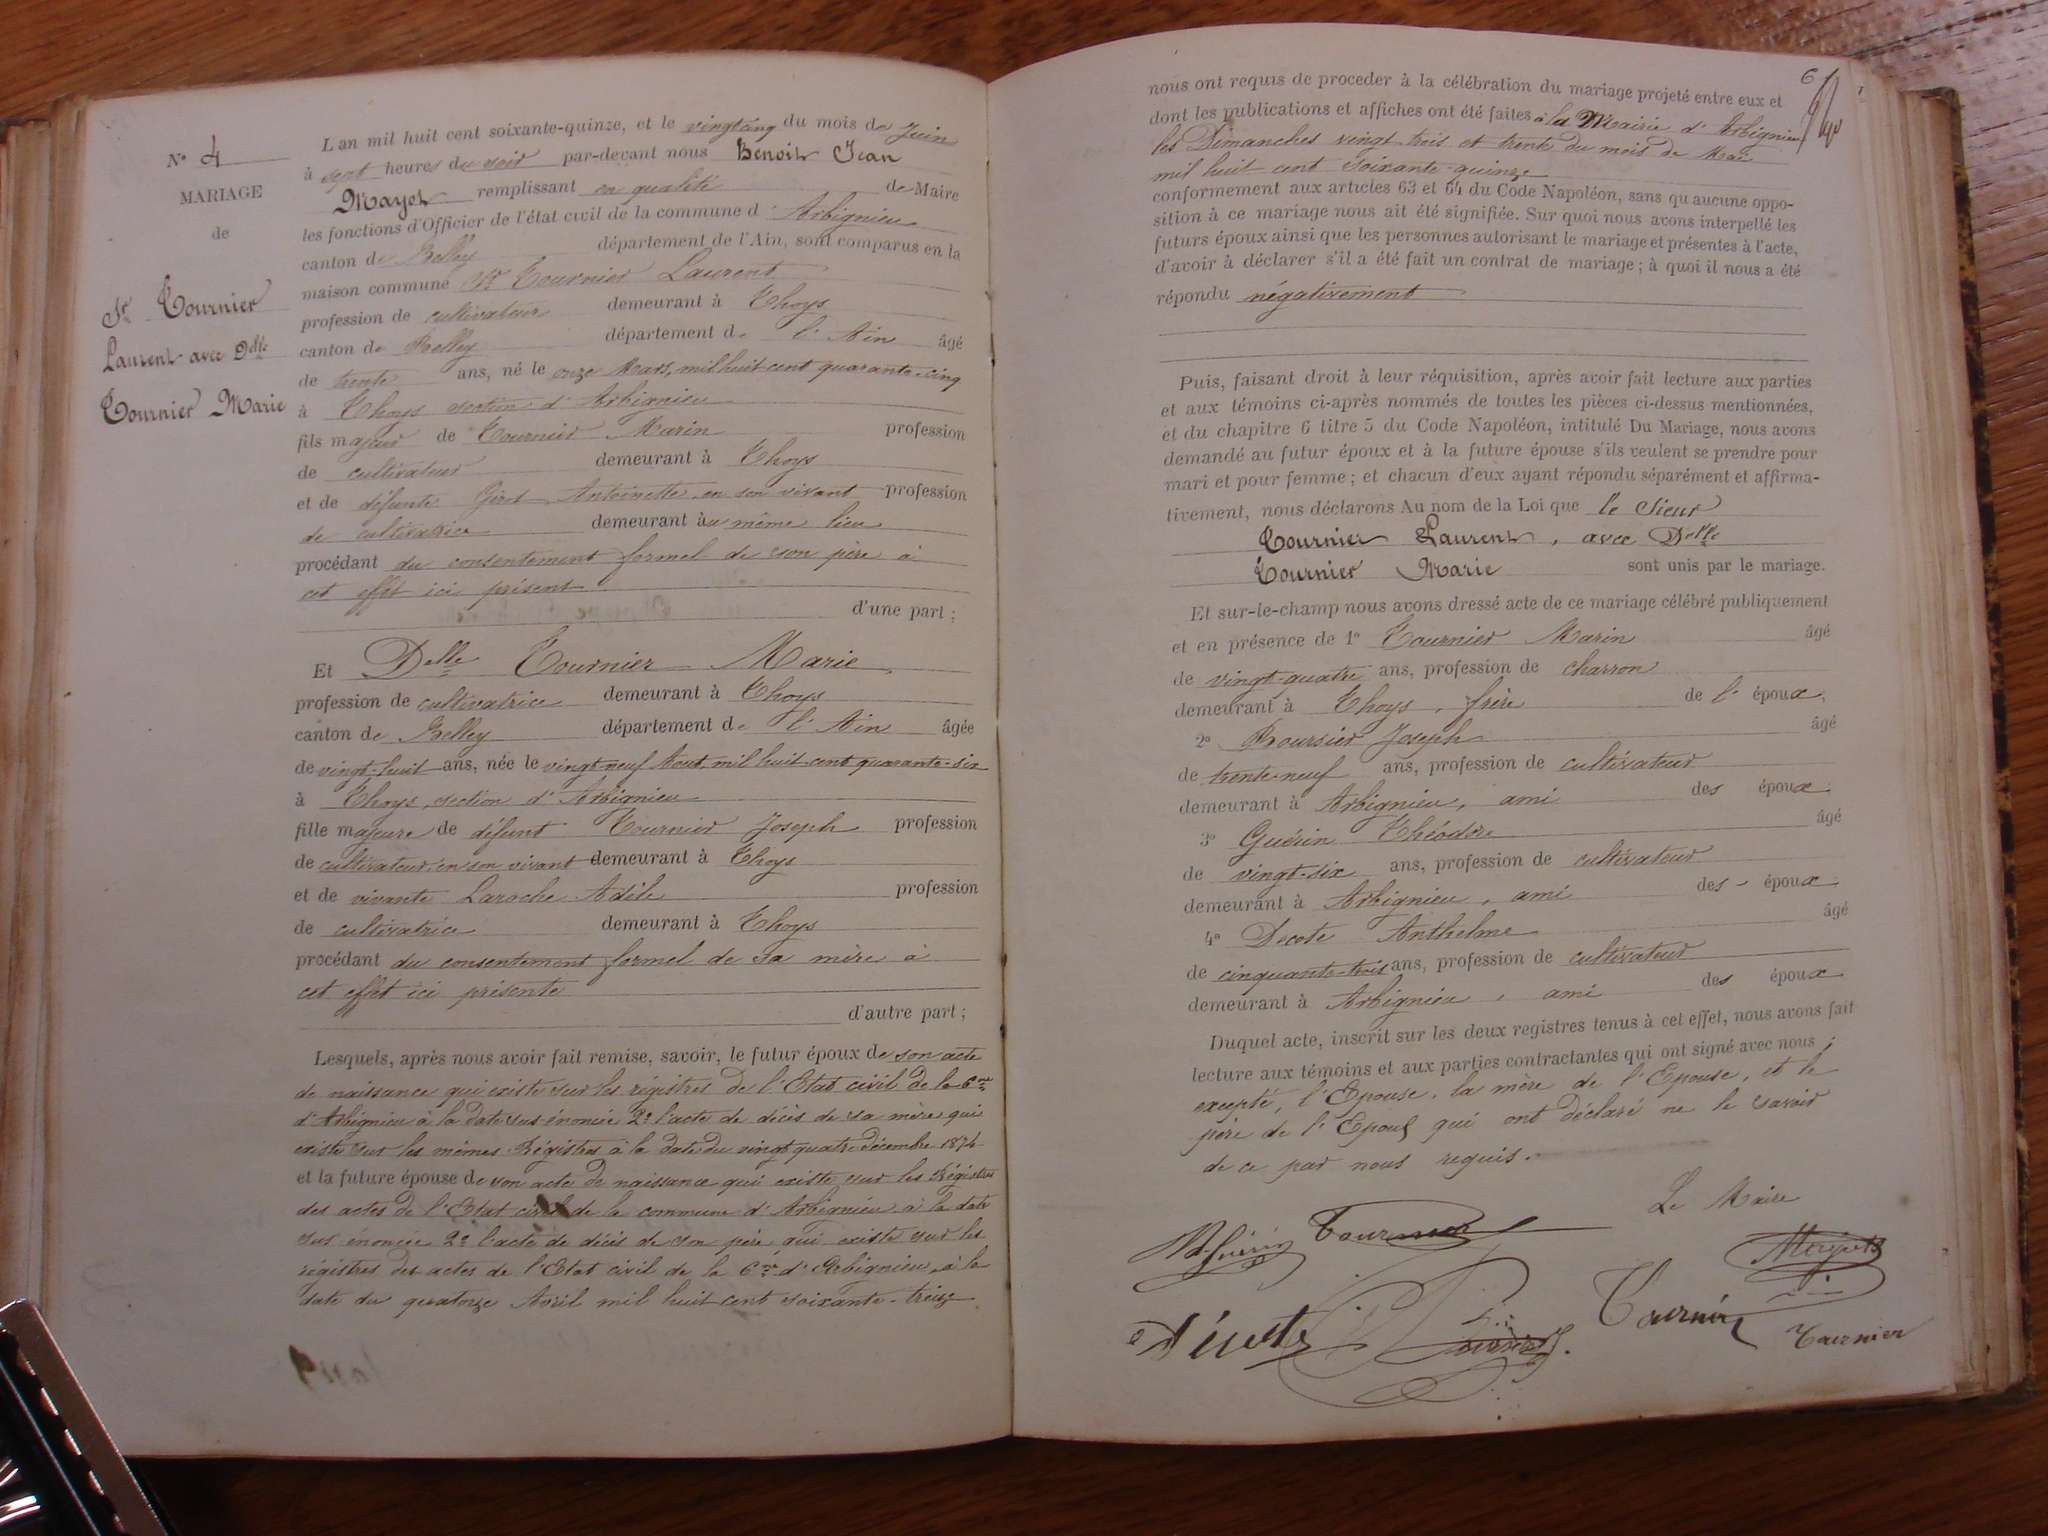 N° 4
MARIAGE
de
Sr Tournier
Laurent avec Delle
Tournier Marie
L'an mil huit cent soixante-quinze, et le vingt cinq du mois de Juin
à sept heures du soir par-devant nous Benoit Jean
Mayet remplissant en qualité de Maire
les fonctions d'Officier de l'état civil de la commune d'Arbignieu
canton de Belley département de l'Ain, sont comparus en la
maison commune Sr Tournier Laurent
profession de cultivateur demeurant à Thoys
canton de Belley département de l'Ain âgé
de trente ans, né le onze Mars, mil huit cent quarante-cinq
à Thoys section d'Arbignieu
fils majeur de Tournier Marin profession
de cultivateur demeurant à Thoys
et de défunte Antoinette en son vivant profession
de cultivatrice demeurant au même lieu
procédant du consentement formel de son père à
cet effet ici présent
d'une part ;
Et Delle Tournier Marie
profession de cultivatrice demeurant à Thoys
canton de Belley département de l'Ain âgée
de vingt-huit ans, née le vingt neuf Aout, mil huit cent quarante-six
à Thoys, section d'Arbignieu
fille majeure de défunt Tournier Joseph profession
de cultivateur en son vivant demeurant à Thoys
et de vivante Laroche Adèle profession
de cultivatrice demeurant à Thoys
procédant du consentement formel de sa mère à
cet effet ici présente
d'autre part ;
Lesquels, après nous avoir fait remise, savoir, le futur époux de son acte
de naissance qui existe sur les régistres de l'Etat civil de la Cne
d'Arbignieu à la date sus énoncée 2° l'acte de décès de sa mère qui
existe sur les mêmes Régistres à la date du vingt quatre décembre 1874
et la future épouse de son acte de naissance qui existe sur les Régistres
des actes de l'Etat civil de la commune d'Arbignieu à la date
sus énoncée 2° l'acte de décès de son père qui existe sur les
régistres des actes de l'Etat civil de la Cne d'Arbignieu, à la
date du quatorze Avril mil huit cent soixante-treize
6
nous ont requis de proceder à la célébration du mariage projeté entre eux et
dont les publications et affiches ont été faites à la Mairie d'Arbignieu
les Dimanches vingt trois et trente du mois de Mai
mil huit cent soixante-quinze
conformement aux articles 63 et 64 du Code Napoléon, sans qu'aucune oppo-
sition à ce mariage nous ait été signifiée. Sur quoi nous avons interpellé les
futurs époux ainsi que les personnes autorisant le mariage et présentes à l'acte,
d'avoir à déclarer s'il a été fait un contrat de mariage ; à quoi il nous a été
répondu négativement
Puis, faisant droit à leur réquisition, après avoir fait lecture aux parties
et aux témoins ci-après nommés de toutes les pièces ci-dessus mentionnées,
et du chapitre 6 titre 5 du Code Napoléon, intitulé Du Mariage, nous avons
demandé au futur époux et à la future épouse s'ils veulent se prendre pour
mari et pour femme ; et chacun d'eux ayant répondu séparément et affirma-
tivement, nous déclarons Au nom de la Loi que le Sieur
Tournier Laurent, avec Delle
Tournier Marie sont unis par le mariage.
Et sur-le-champ nous avons dressé acte de ce mariage célébré publiquement
et en présence de 1° Tournier Marin âgé
de vingt-quatre ans, profession de charron
demeurant à Thoys, frère de l'époux,
2° Boursier Joseph âgé
de trente-neuf ans, profession de cultivateur
demeurant à Arbignieu, ami des époux
3° Guérin Théodore âgé
de vingt-six ans, profession de cultivateur
demeurant à Arbignieu, ami des époux
4° Decote Anthelme âgé
de cinquante-trois ans, profession de cultivateur
demeurant à Arbignieu, ami des époux
Duquel acte, inscrit sur les deux registres tenus à cet effet, nous avons fait
lecture aux témoins et aux parties contractantes qui ont signé avec nous ;
excepté, l'Epouse, la mère de l'Epouse, et le
père de l'Epoux qui ont déclaré ne le savoir
de ce par nous requis.
Le Maire
Guérin Tournier Mayet
Tournier
Tournier